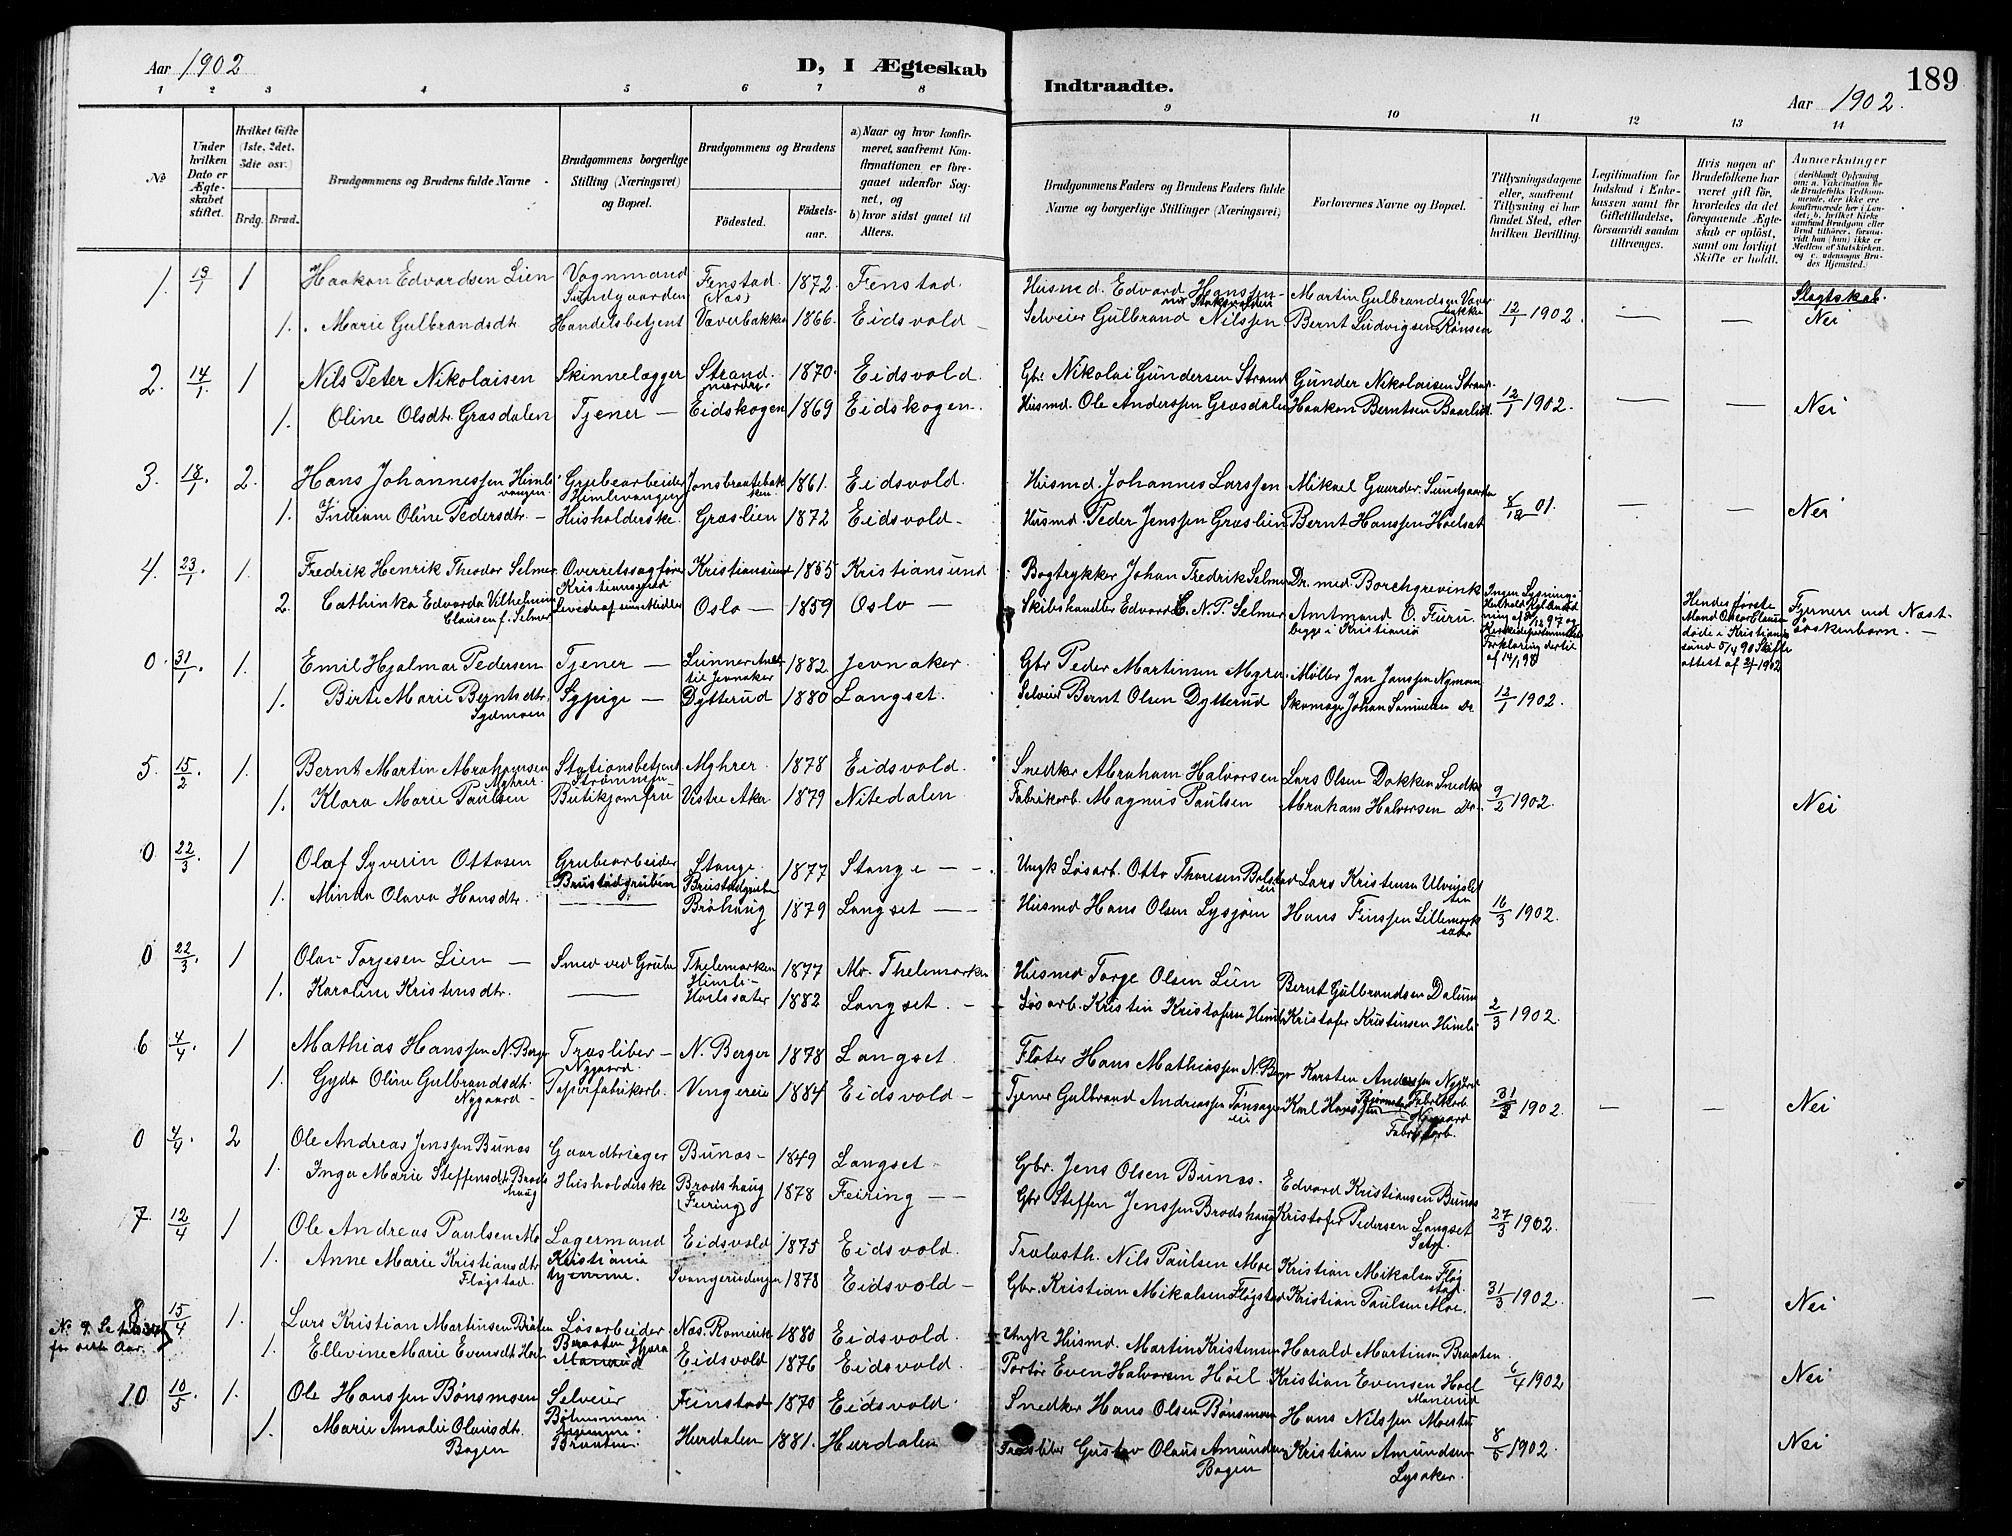 Aar 1902
D, I Ægteskab
Indtraadte.
189
Aar 1902.
1 2 3 4 5 6 7 8 9 10 11 12 13 14
№
Under hvilken Dato er Ægteskabet stiftet.
Hvilket Gifte (1ste, 2det, 3die osv.)
Brdg. Brud.
Brudgommens og Brudens fulde Navne
Brudgommens borgerlige Stilling (Næringsvei) og Bopæl.
Brudgommens og Brudens
Fødested.
Fødselsaar.
a) Naar og hvor konfirmeret, saafremt Konfirmationen er foregaaet udenfor Sognet, og
b) hvor sidst gaaet til Alters.
Brudgommens Faders og Brudens Faders fulde Navne og borgerlige Stillinger (Næringsvei)
Forlovernes Navne og Bopæl.
Tillysningsdagene eller, saafremt Tillysning ei har fundet Sted, efter hvilken Bevilling.
Legitimation for Indskud i Enkekassen samt for Giftetilladelse, forsaavidt saadan tiltrænges.
Hvis nogen af Brudefolkene har været gift før, hvorledes da det foregaaende Ægteskab er opløst, samt om lovligt Skifte er holdt.
Anmærkninger (deriblandt Oplysning om: a. Vakcination for de Brudefolks Vedkommende, der ikke ere konfirmerede her i Landet; b. hvilket Kirkesamfund Brudgom eller Brud tilhører, forsaavidt han (hun) ikke er Medlem af Statskirken, og c. udensogns Brudes Hjemsted.)
Slagtskab.
1. 13/1 1 Haakon Edvardsen Lien Vognmand Sundgaarden Fenstad (Næs) 1872. Fenstad. Husmd. Edvard Hanssen Martin Gulbrandsen Vaverbakke
1. Marie Gulbrandsdtr Handelsbetjent Vaverbakken 1866. Eidsvold — Selveier Gulbrand Nilssen Bernt Ludvigsen Rønsen 12/1 1902. — — Nei
2. 14/1. 1 Nils Peter Nikolaisen Skinnelægger Strand nordre. 1870. Eidsvold. Gbr. Nikolai Gundersen Strand Gunder Nikolaisen Strand.
1. Oline Olsdtr Græsdalen Tjener — Eidskogen 1869 Eidskogen. Husmd. Ole Anderssen Græsdalen Haakon Berntsen Baarlid. 12/1 1902. — — Nei
3. 18/1. 2. Hans Johannessen Himlevangen Grubearbeider Himlevangen Jonsbraatebakken 1861. Eidsvold. Husmd. Johannes Larssen Mikael Gaarder Sundgaarden
1. Indiane Oline Pedersdtr. — Husholderske. Græslien 1872 Eidsvold — Husmd. Peder Jenssen Græslien Bernt Hanssen Hoelsæt 8/12 01. — — Nei
4. 23/1. 1. Fredrik Henrik Theodor Selmer. Overretssagfører Kristianssund Kristianssund 1855 Kristiansund Bogtrykker Johan Fredrik Selmer Dr. med. Borchgrevink
2. Cathinka Edvarda Vilhelmine Clausen f. Selmer Lever af sine Midler Oslo — 1859 Oslo — Skibshandler Edvard C. N. P. Selmer Amtmand O. Furu. begge i Kristiania
Ingen Lysning. Henhold Kgl. Anordning af
Kirkedepartementets Forklaring dertil af 14/1 98
Hendes første Mand Oscar Clausen døde i Kristianssand 5/4 90 Skifteattest af 2/1 1902
Fjernere end Næstsøskenbarn. —
0. 31/1 1. Emil Hjalmar Pedersen Tjener — Lunner Anx til Jevnaker 1882 Jevnaker. Gbr Peder Martinsen Myren Møller Jan Janssen Nymoen
1. Birte Marie Berntsdtr. Sydmoen Sypige — Dytterud 1880 Langset. Selveier Bernt Olsen Dytterud Skomager Johan Samuelsen Do. 12/1 1902.
5. 15/2. 1. Bernt Martin Abrahamsen Myhrer. Stationsbetjent Strømmen Myhrer. 1878 Eidsvold. Snedker Abraham Halvorsen Lars Olsen Dokken Snedker
1. Klara Marie Paulsen Butikjomfru Vestre Aker. 1879 Nitedalen Fabrikarb. Magnus Paulsen Abraham Halvorsen Do. 9/2 1902. Nei
0. 22/3. 1 Olaf Syverin Ottosen Grubearbeider Brustadgruben Stange. 1877 Stange — —. Ungk Løsarb. Otto Thoresen Bolstadeie Lars Kristensen
1. Minda Olava Hansdtr. — Brustadgruben Brøhaug 1879 Langset — — Husmd Hans Olsen Lysjøen Hans Finssen Lillemorksæter 16/3 1902.
0 22/3. 1 Olav Torjesen Lien — Smed ved Gruben Thelemarken 1877 Mo. Thelemarken Husmd Torge Olsen Lien Bernt Gulbrandsen Dalum
1. Karoline Kristensdtr. — Himli-Hoelssæter 1882 Langset. — Løsarb. Kristen Kristofersen Himli Kristofer Kristensen Himli 2/3 1902.
6 4/4. 1 Mathias Hanssen N. Berger Træsliber — N. Berger 1878 Langset. Fløter Hans Mathiassen N. Berger Karsten Anderssen Nygård
1. Gyda Oline Gulbrandsdtr. Nygaard — Nygaard. Papirfabrikarb. Vengereie 1884 Eidsvold — Tjener Gulbrand Andreassen Tønsagereie Karl Hanssen Nygaard Fabrikarb. 31/3 1902. — — Nei
0 4/4. 2 Ole Andreas Jenssen Bunæs Gaardbruger Bunæs — 1849 Langset — Gbr. Jens Olsen Bunæs. Edvard Kristiansen Bunæs
1. Inga Marie Steffensdtr. Brodshaug Husholderske Brodshaug (Feiring) 1878 Feiring — — Gbr Steffen Jenssen Brodshaug Kristofer Pedersen Langset 27/3 1902.
7. 12/4 1 Ole Andreas Paulsen Mo Lagermand Kristiania Eidsvold 1875 Eidsvold. Trælasth. Nils Paulsen Moe Kristian Mikalsen Fløgstad
1. Anne Marie Kristiansdtr Fløgstad. hjemme. 1878 Eidsvold — Gbr. Kristian Mikalsen Fløgstad Kristian Paulsen Moe. 31/3 1902. — Nei
8 15/4 1. Lars Kristian Martinsen Bråten Løsarbeider Braaten Næs. Romerike 1880 Eidsvold. Ungk Husmd. Martin Kristensen Harald Martinsen Braaten.
No 9. Se
for dette Aar.
1. Ellevine Marie Evensdtr Hoel Eidsvold 1876 Eidsvold. Portør Even Halvorsen Höel Kristian Evensen Hoel 6/4 1902 Nei
10 10/5. 1. Ole Hanssen Bønsmoen Selveier Fenstad 1870 Eidsvold. Snedker Hans Olsen Bønsmoen Hans Nilssen Moestu
1. Marie Amalie Olausdtr. Bagen hjemme. Braaten. Hurdalen 1881. Hurdalen Træsliber Gustav Olaus Amundsen Bagen Kristian Amundsen Lysaker. 8/5 1902 Nei